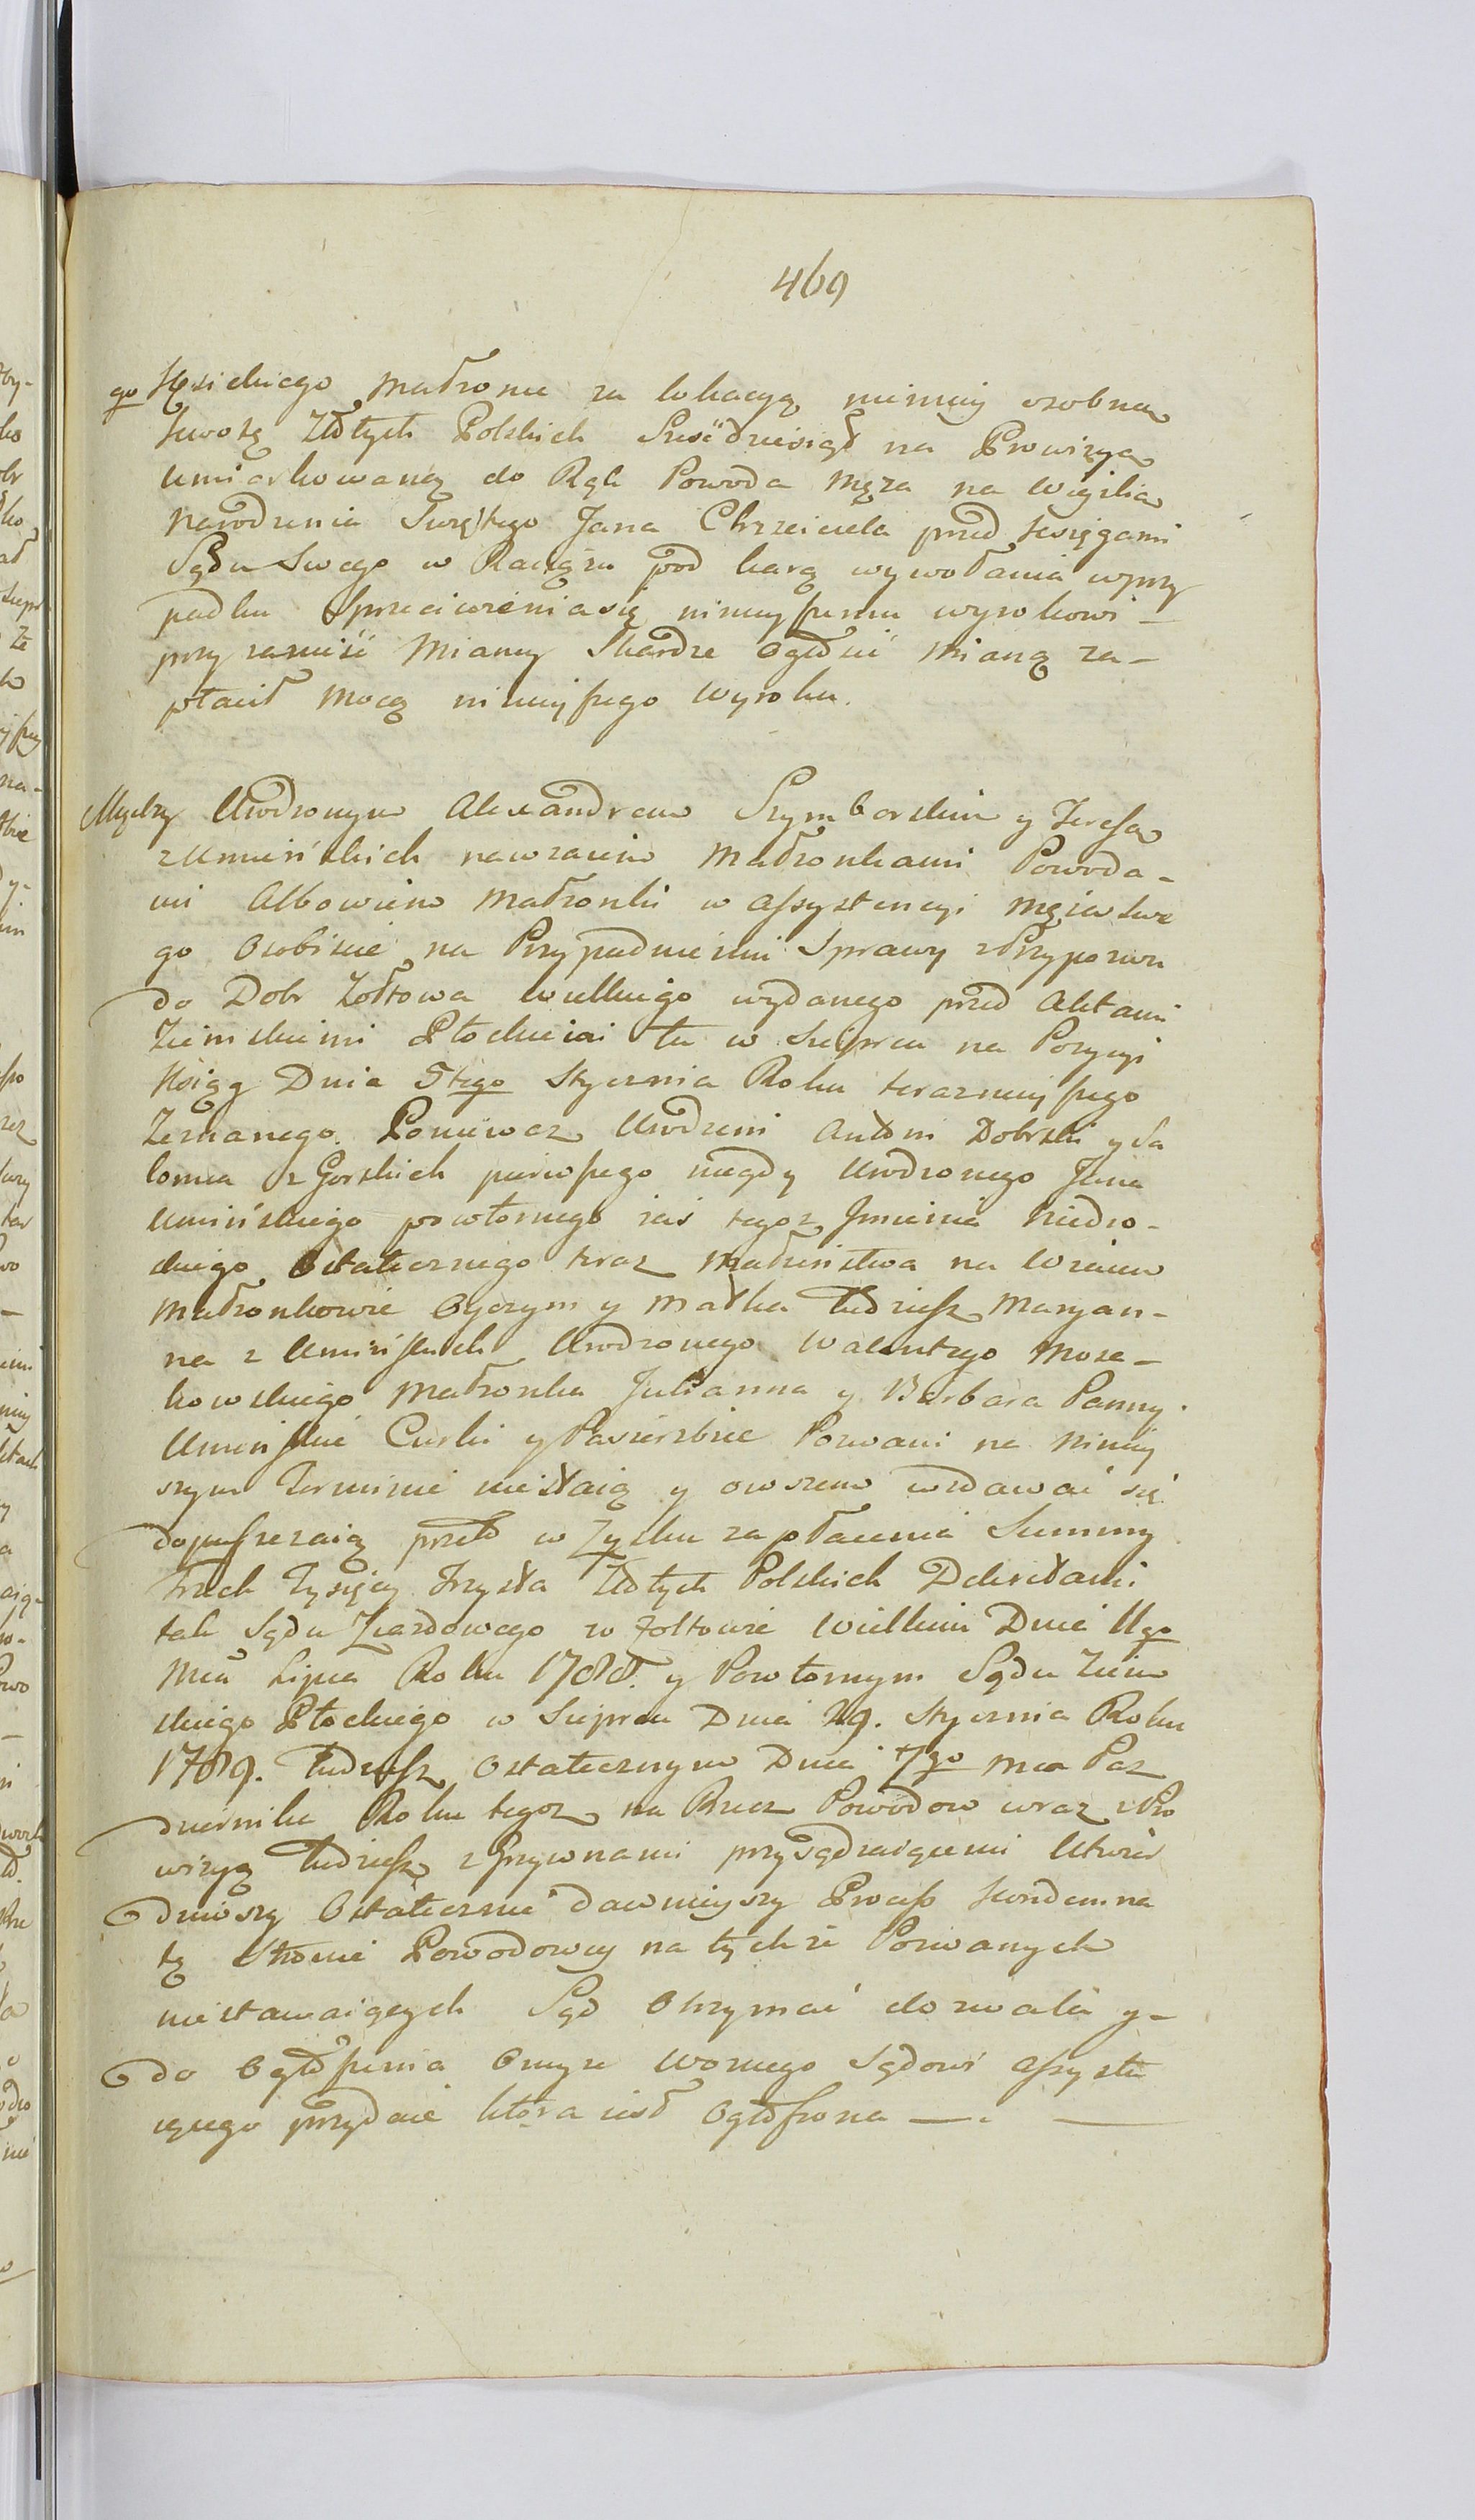 469
go Kęsickiego Małżonce za lokacyą mimiej osobną
kwotę Złłtych Polskich Sześćdziesiąt na Prowizyą
umiarkowaną do Rąk Powoda Męża na Wigilią
Narodzenia Swiętego Jana Chrzciciela przed Xsięgami
Sądu Swego w Raciążu pod karą wywołania wprzy
padku Sprzeciwienia się ninieyszemu wyrokowi –
przy zaniesć Mianey Skardze Ogłosić Mianą za–
płacił Mocą ninieyszego Wyroku.
Między Urodzonym Alexandrem Szymborskim y Teresą
z Uminskich nawzaiem Małżonkami Powoda–
mi Albowiem Małżonki w Assystencyi Męża Swe
go Osobiście na Przypadnieniu Sprawy z Przypozwu
do Dobr Zołtowa Wielkiego wydanego przed Aktami
Ziemskiemi Płockiemi tu w Sieprcu na Pozycyi
Xsiąg Dnia 5tego Stycznia Roku teraznieyszego
Zeznanego. Poniewaz Urodzeni Antoni Dobrski y Sa
lomea z Gorskich pierwszego niegdy Urodzonego Jana
Uminskiego powtornego zaś tegoz Jmienia Niedro–
ckiego Ostatecznego teraz Małżeństwa na Wzaiem
Małżonkowie Oyczym y Matka Tudziesz Maryan–
na z Uminskich Urodzonego Walentego Moza–
kowskiego Małżonka Julianna y Barbara Panny
Uminskie Curki y Pasierzbice Pozwani na Niniey
szym Terminie niestaią y owszem wzdawać się
dopuszczaią przeto w Zysku zapłacenia Summy
Trzech Tysięcy Trzysta Złłtych Polskich Dekretami
tak Sądu Ziazdowego w Zołtowie Wielkim Dnia 11go
Mca Lipca Roku 1788. y Powtornym Sądu Ziem
skiego Płockiego w Sieprcu Dnia 29. Stycznia Roku
1789. Tudziesz Ostatecznym Dnia 7go Mca Paz
dziernika Roku tegoz na Rzecz Powodow wraz z Pro
wizyą Tudziesz z Grzywnami przysądzaiącemi Utwier
dziwszy Ostatecznie dawnieyszy Process Kondemna
tę Stronie Powodowey na tychże Pozwanych
niestawaiących Sąd Otrzymać dozwala y–
do Ogłoszenia Onyze Woznego Sądowi Assystu
iącego przydaie która iest Ogłoszona —. —